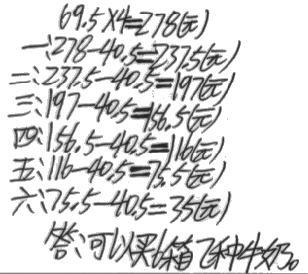 69.5×4=278(元)
一、278-40.5=237.5(元)
二、237.5-40.5=197(元)
三、197-40.5=156.5(元)
四、156.5-40.5=116(元)
五、116-40.5=75.5(元)
六、75.5-40.5=35(元)
答:可以买6箱飞种牛奶。